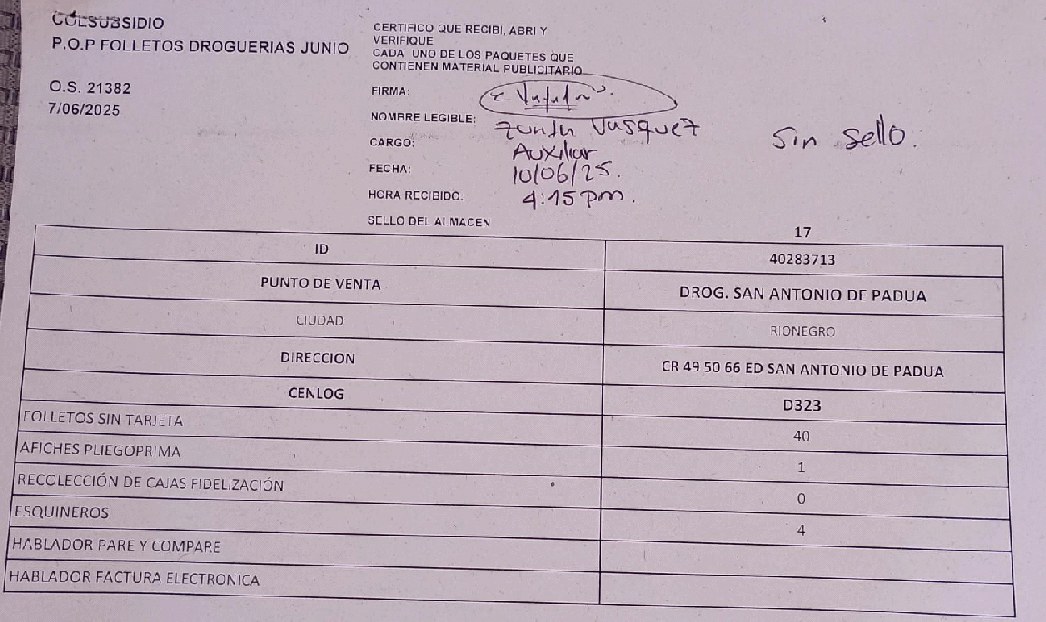 COLSUBSIDIO
P.O.P FOLLETOS DROGUERIAS JUNIO
O.S. 21382
7/06/2025
CERTIFICO QUE RECIBI, ABRI Y
VERIFIQUE
CADA UNO DE LOS PAQUETES QUE
CONTIENEN MATERIAL PUBLICITARIO
FIRMA:
NOMBRE LEGIBLE: Vasquez
CARGO: Auxiliar
FECHA: 10/06/25.
HORA RECIBIDO. 4:15 pm.
SELLO DEL ALMACEN
Sin sello.
17
ID 40283713
PUNTO DE VENTA DROG. SAN ANTONIO DE PADUA
CIUDAD RIONEGRO
DIRECCION CR 49 50 66 ED SAN ANTONIO DE PADUA
CENLOG D323
FOLLETOS SIN TARJETA 40
AFICHES PLIEGOPRIMA 1
RECOLECCIÓN DE CAJAS FIDELIZACIÓN 0
ESQUINEROS 4
HABLADOR PARE Y COMPARE
HABLADOR FACTURA ELECTRONICA